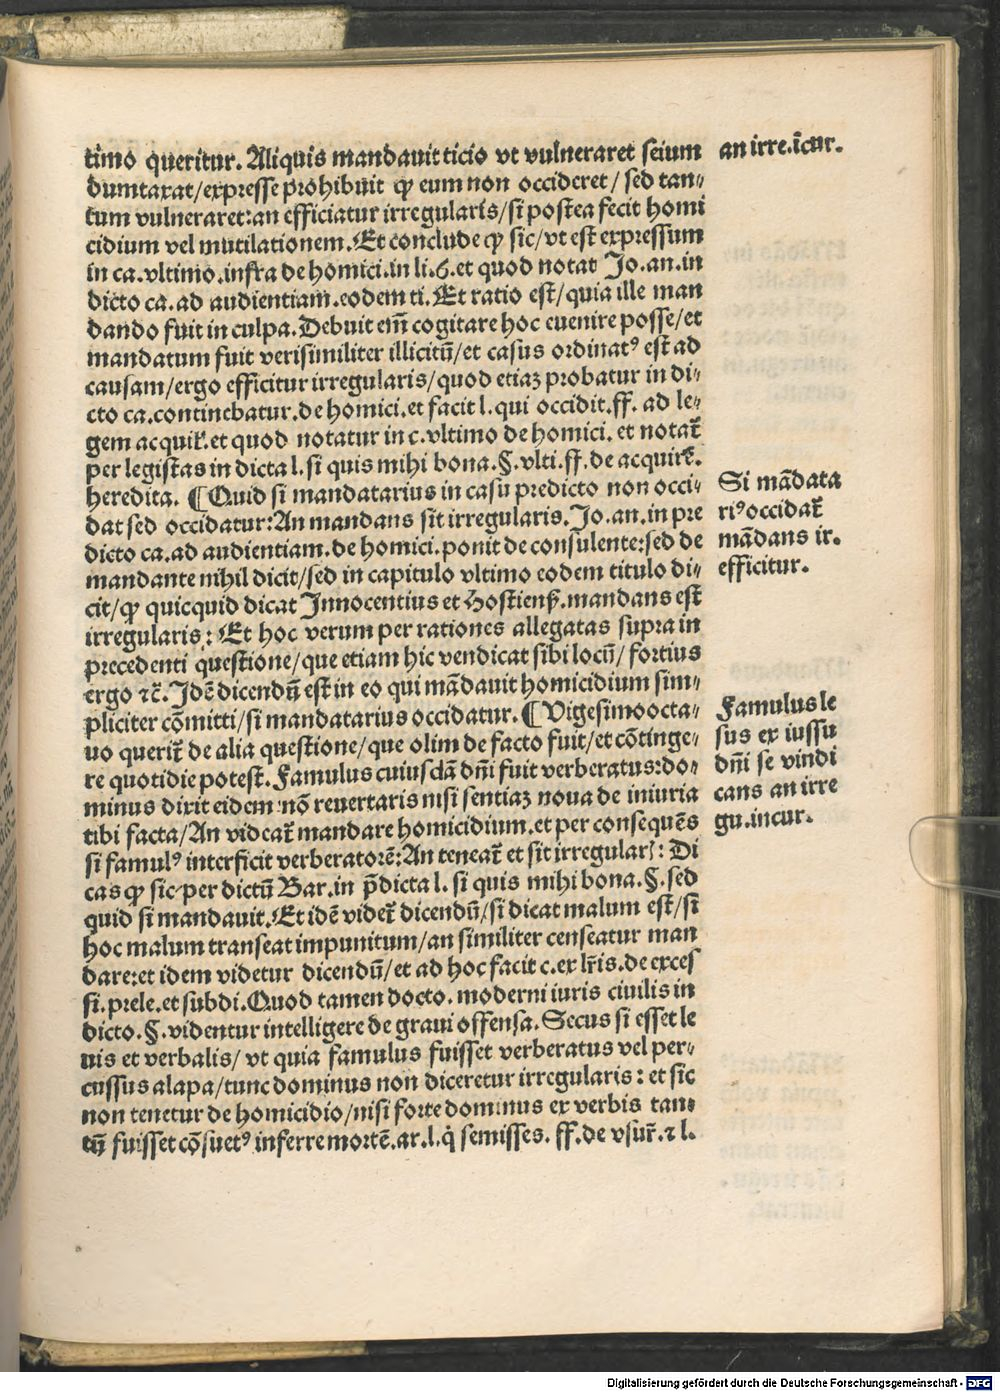 timo queritur. Aliquis mandauit ticio vt vulneraret seium
dumtaxat/expresse prohibuit ꝙ eum non occideret/ sed tan⸗
tum vulneraret:an efficiatur irregularis/si postea fecit homi
cidium vel mutilationem. Et conclude ꝙ sic/vt est expressum
in ca.vltimo.infra de homici.in li.6.et quod notat Jo.an.in
dicto ca.ad audientiam.eodem ti. Et ratio est/quia ille man
dando fuit in culpa. Debuit em̄ cogitare hoc euenire posse/et
mandatum fuit verisimiliter illicitū/et casus ordinatꝰ est ad
causam/ergo efficitur irregularis/quod etiaꝫ probatur in di⸗
cto ca.continebatur.de homici.et facit l. qui occidit.ff. ad le⸗
gem acquil̓.et quod notatur in c.vltimo de homici. et notat̄
per legistas in dicta l.si quis mihi bona.§.vlti.ff.de acquir̄.
heredita. ¶ Quid si mandatarius in casu predicto non occi⸗
dat sed occidatur:An mandans sit irregularis. Jo.an.in pre
dicto ca.ad audientiam.de homici.ponit de consulente:sed de
mandante nihil dicit/sed in capitulo vltimo eodem titulo di⸗
cit/ꝙ quicquid dicat Innocentius et Hostiens̄.mandans est
irregularis: Et hoc verum per rationes allegatas supra in
precedenti questione/que etiam hic vendicat sibi locū/ fortius
ergo ⁊c̄. Idē dicendū est in eo qui mādauit homicidium sim⸗
pliciter cōmitti/si mandatarius occidatur. ¶ Vigesimoocta⸗
uo querit̄ de alia questione/que olim de facto fuit/et cōtinge⸗
re quotidie potest. Famulus cuiusdā dn̄i fuit verberatus:do⸗
minus dixit eidem:nō reuertaris nisi sentiaꝫ noua de iniuria
tibi facta/An videat̄ mandare homicidium.et per consequēs
si famulꝰ interficit verberatorē:An teneat̄ et sit irregularis: Di
cas ꝙ sic per dictū Bar.in p̄dicta l. si quis mihi bona.§.sed
quid si mandauit. Et idē videt̄ dicendū/si dicat malum est/si
hoc malum transeat impunitum/an similiter censeatur man
dare:et idem videtur dicendū/et ad hoc facit c.ex lr̄is.de exces
si.prele.et subdi. Quod tamen docto. moderni iuris ciuilis in
dicto.§.videntur intelligere de graui offensa. Secus si esset le
uis et verbalis/ vt quia famulus fuisset verberatus vel per⸗
cussus alapa/tunc dominus non diceretur irregularis: et sic
non tenetur de homicidio/nisi forte dominus ex verbis tan⸗
tū fuisset cōsuetꝰ inferre mortē.ar.l.q̇ semisses. ff.de vsur̄.⁊ l.
an irre.īcur.
Si mādata
riꝰ occidat̄
mādans ir.
efficitur.
Famulus le
sus ex iussu
dn̄i se vindi
cans an irre
gu.incur.
Digitalisierung gefördert durch die Deutsche Forschungsgemeinschaft - DFG